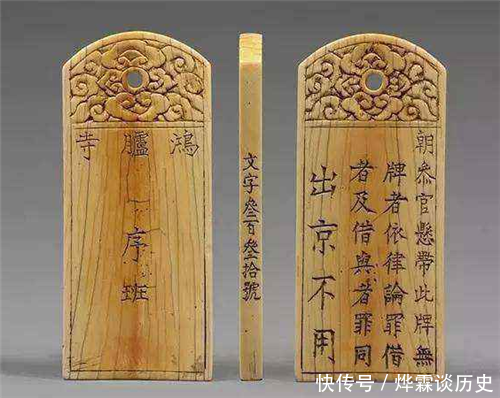 鴻臚寺
序班
文字叄百叄拾號
朝叅官懸帶此牌無
牌者依律論罪借
者及借與者罪同
出京不用
快传号／烨霖谈历史